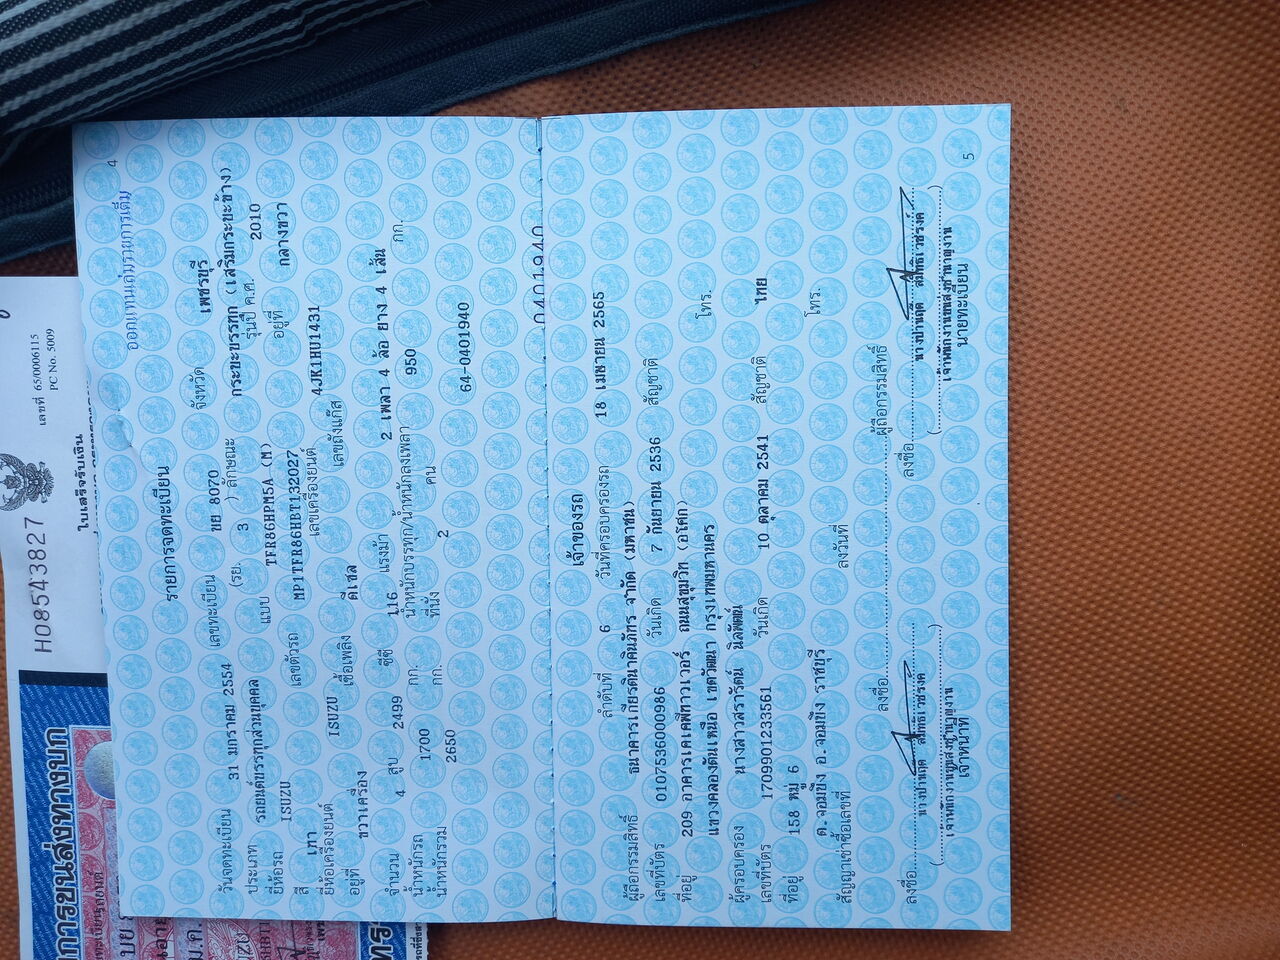 H08543827
เลขที่ 65/0006115
PC No. 5009
ใบเสร็จรับเงิน
การขนส่งทางบก
4
ออกแทนเล่มรายการเต็ม
รายการจดทะเบียน
วันจดทะเบียน 31 มกราคม 2554 เลขทะเบียน ขย 8070 จังหวัด เพชรบุรี
ประเภท รถยนต์บรรทุกส่วนบุคคล (รย. 3 ) ลักษณะ กระบะบรรทุก (เสริมกระบะข้าง)
ยี่ห้อรถ ISUZU แบบ TFR86HPM5A (M) รุ่นปี ค.ศ. 2010
สี เทา เลขตัวรถ MP1TFR86HBT132027 อยู่ที่ กลางขวา
ยี่ห้อเครื่องยนต์ ISUZU เลขเครื่องยนต์ 4JK1HU1431
อยู่ที่ ขวาเครื่อง เชื้อเพลิง ดีเซล เลขถังแก๊ส
จำนวน 4 สูบ 2499 ซีซี 116 แรงม้า 2 เพลา 4 ล้อ ยาง 4 เส้น
น้ำหนักรถ 1700 กก. น้ำหนักบรรทุก/น้ำหนักลงเพลา 950 กก.
น้ำหนักรวม 2650 กก. ที่นั่ง 2 คน
64-0401940
0401940
เจ้าของรถ
ลำดับที่ 6 วันที่ครอบครองรถ 18 เมษายน 2565
ผู้ถือกรรมสิทธิ์ ธนาคารเกียรตินาคินภัทร จำกัด (มหาชน)
เลขที่บัตร 0107536000986 วันเกิด 7 กันยายน 2536 สัญชาติ
ที่อยู่ 209 อาคารเคเคพีทาวเวอร์ ถนนสุขุมวิท (อโศก)
แขวงคลองตันเหนือ เขตวัฒนา กรุงเทพมหานคร โทร.
ผู้ครอบครอง นางสาวสรารัตน์ นิลพัฒน์
เลขที่บัตร 1709901233561 วันเกิด 10 ตุลาคม 2541 สัญชาติ ไทย
ที่อยู่ 158 หมู่ 6
ต.จอมบึง อ.จอมบึง ราชบุรี โทร.
สัญญาเช่าซื้อเลขที่ ลงวันที่
ลงชื่อ ผู้ถือกรรมสิทธิ์
ลงชื่อ ลงชื่อ
เจ้าหน้าที่ นายทะเบียน
5